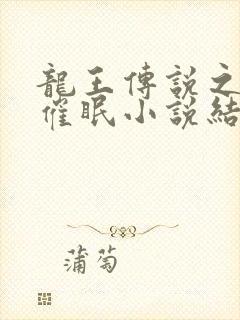 龍王傳說之
催眠小說結
蒲萄